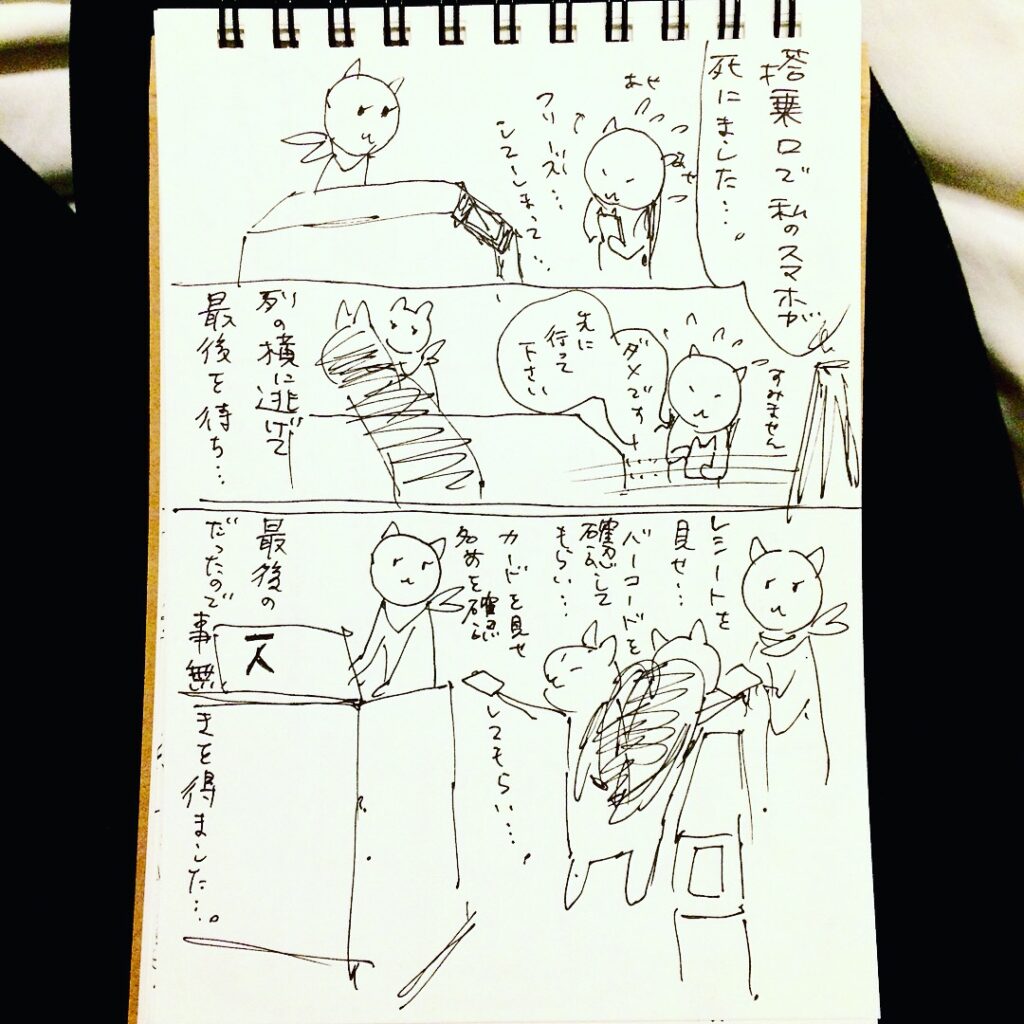 搭乗口で私のスマホが
死にました…。
あせ
あせ
フリーズ…
してしまって…
すみません
ダメです
先に
行って
下さい
列の横に逃げて
最後を待ち…
レシートを
見せ…
バーコードを
確認して
もらい…
カードを見せ
名前を確認
してもらい…。
最後の
だったので
事無
きを得ました…。